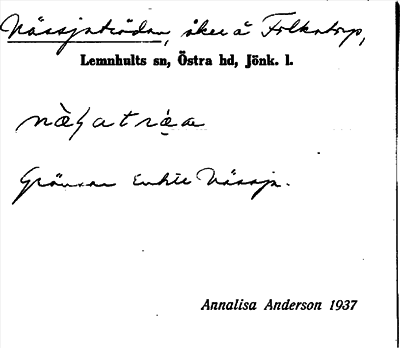 Nässjaträdan, åker å Folkatorp,
Lemnhults sn, Östra hd, Jönk. l.
Gränsar Nässja.
Annalisa Anderson 1937